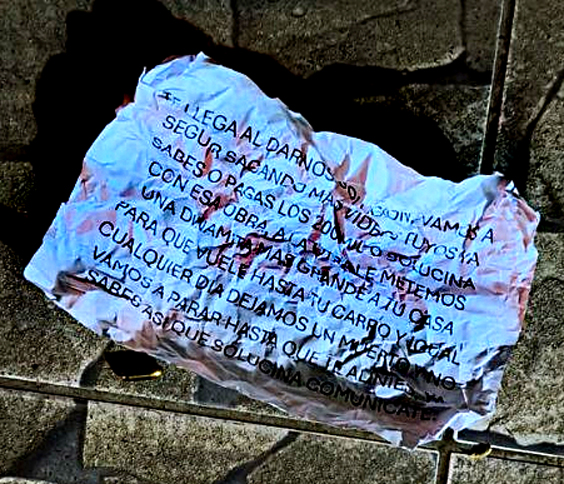 LLEGA AL DARNOS VAMOS A
SEGUIR SACANDO MAS VIDEOS TUYOS YA
SABES O PAGAS LOS 20 MIL O SOLUCINA
CON ESA OBRA A LA METEMOS
UNA DINAMITA MAS GRANDE A TU CASA
PARA QUE VUELE HASTA TU CARRO Y LOCAL
CUALQUIER DIA DEJAMOS UN MUERTO Y NO
VAMOS A PARAR HASTA QUE
SABES ASI QUE SOLUCINA COMUNICATE